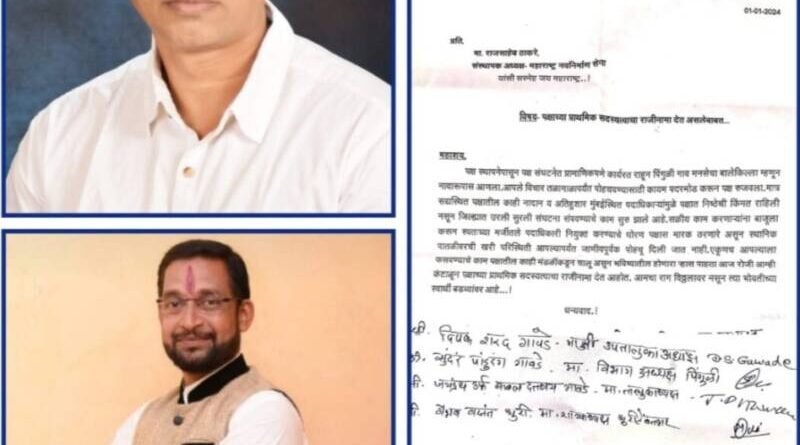 01-01-2024
प्रति,
मा. राजसाहेब ठाकरे,
संस्थापक अध्यक्ष- महाराष्ट्र नवनिर्माण सेना
यांसी सस्नेह जय महाराष्ट्र..!
विषय- पक्षाच्या प्राथमिक सदस्यत्वाचा राजीनामा देत असलेबाबत...
महाशय,
पक्ष स्थापनेपासून पक्ष संघटनेत प्रामाणिकपणे कार्यरत राहून पिंगुळी गाव मनसेचा बालेकिल्ला म्हणून
नावारूपास आणला.आपले विचार तळागाळापर्यंत पोहचवण्यासाठी कायम पदरमोड करून पक्ष रुजवला.मात्र
सद्यस्थित पक्षातील काही नादान व अतिहुशार मुंबईस्थित पदाधिकाऱ्यांमुळे पक्षात निष्ठेची किंमत राहिली
नसून जिल्ह्यात उरली सुरली संघटना संपवण्याचे काम सुरु झाले आहे.सक्रीय काम करणाऱ्यांना बाजूला
करून स्वताच्या मर्जीतले पदाधिकारी नियुक्त करण्याचे धोरण पक्षास मारक ठरणारे असून स्थानिक
पातळीवरची खरी परिस्थिती आपल्यापर्यंत जाणीवपूर्वक पोहचू दिली जात नाही.एकूणच आपल्याला
फसवण्याचे काम पक्षातील काही मंडळींकडून चालू असून भविष्यातील होणारा ऱ्हास पाहता आज रोजी आम्ही
कंटाळून पक्षाच्या प्राथमिक सदस्यत्वाचा राजीनामा देत आहोत. आमचा राग विठ्ठलावर नसून त्या भोवतीच्या
स्वार्थी बडव्यांवर आहे...!
धन्यवाद.!
दिपक शरद गावडे - माजी उपतालुका अध्यक्ष D.S. Gawade
सुंदर पंडुरंग गावडे - मा. विभाग अध्यक्ष पिंगुळी
दत्तात्रय गावडे - मा. तालुकाध्यक्ष
वैभव वसंत धुरी मा.